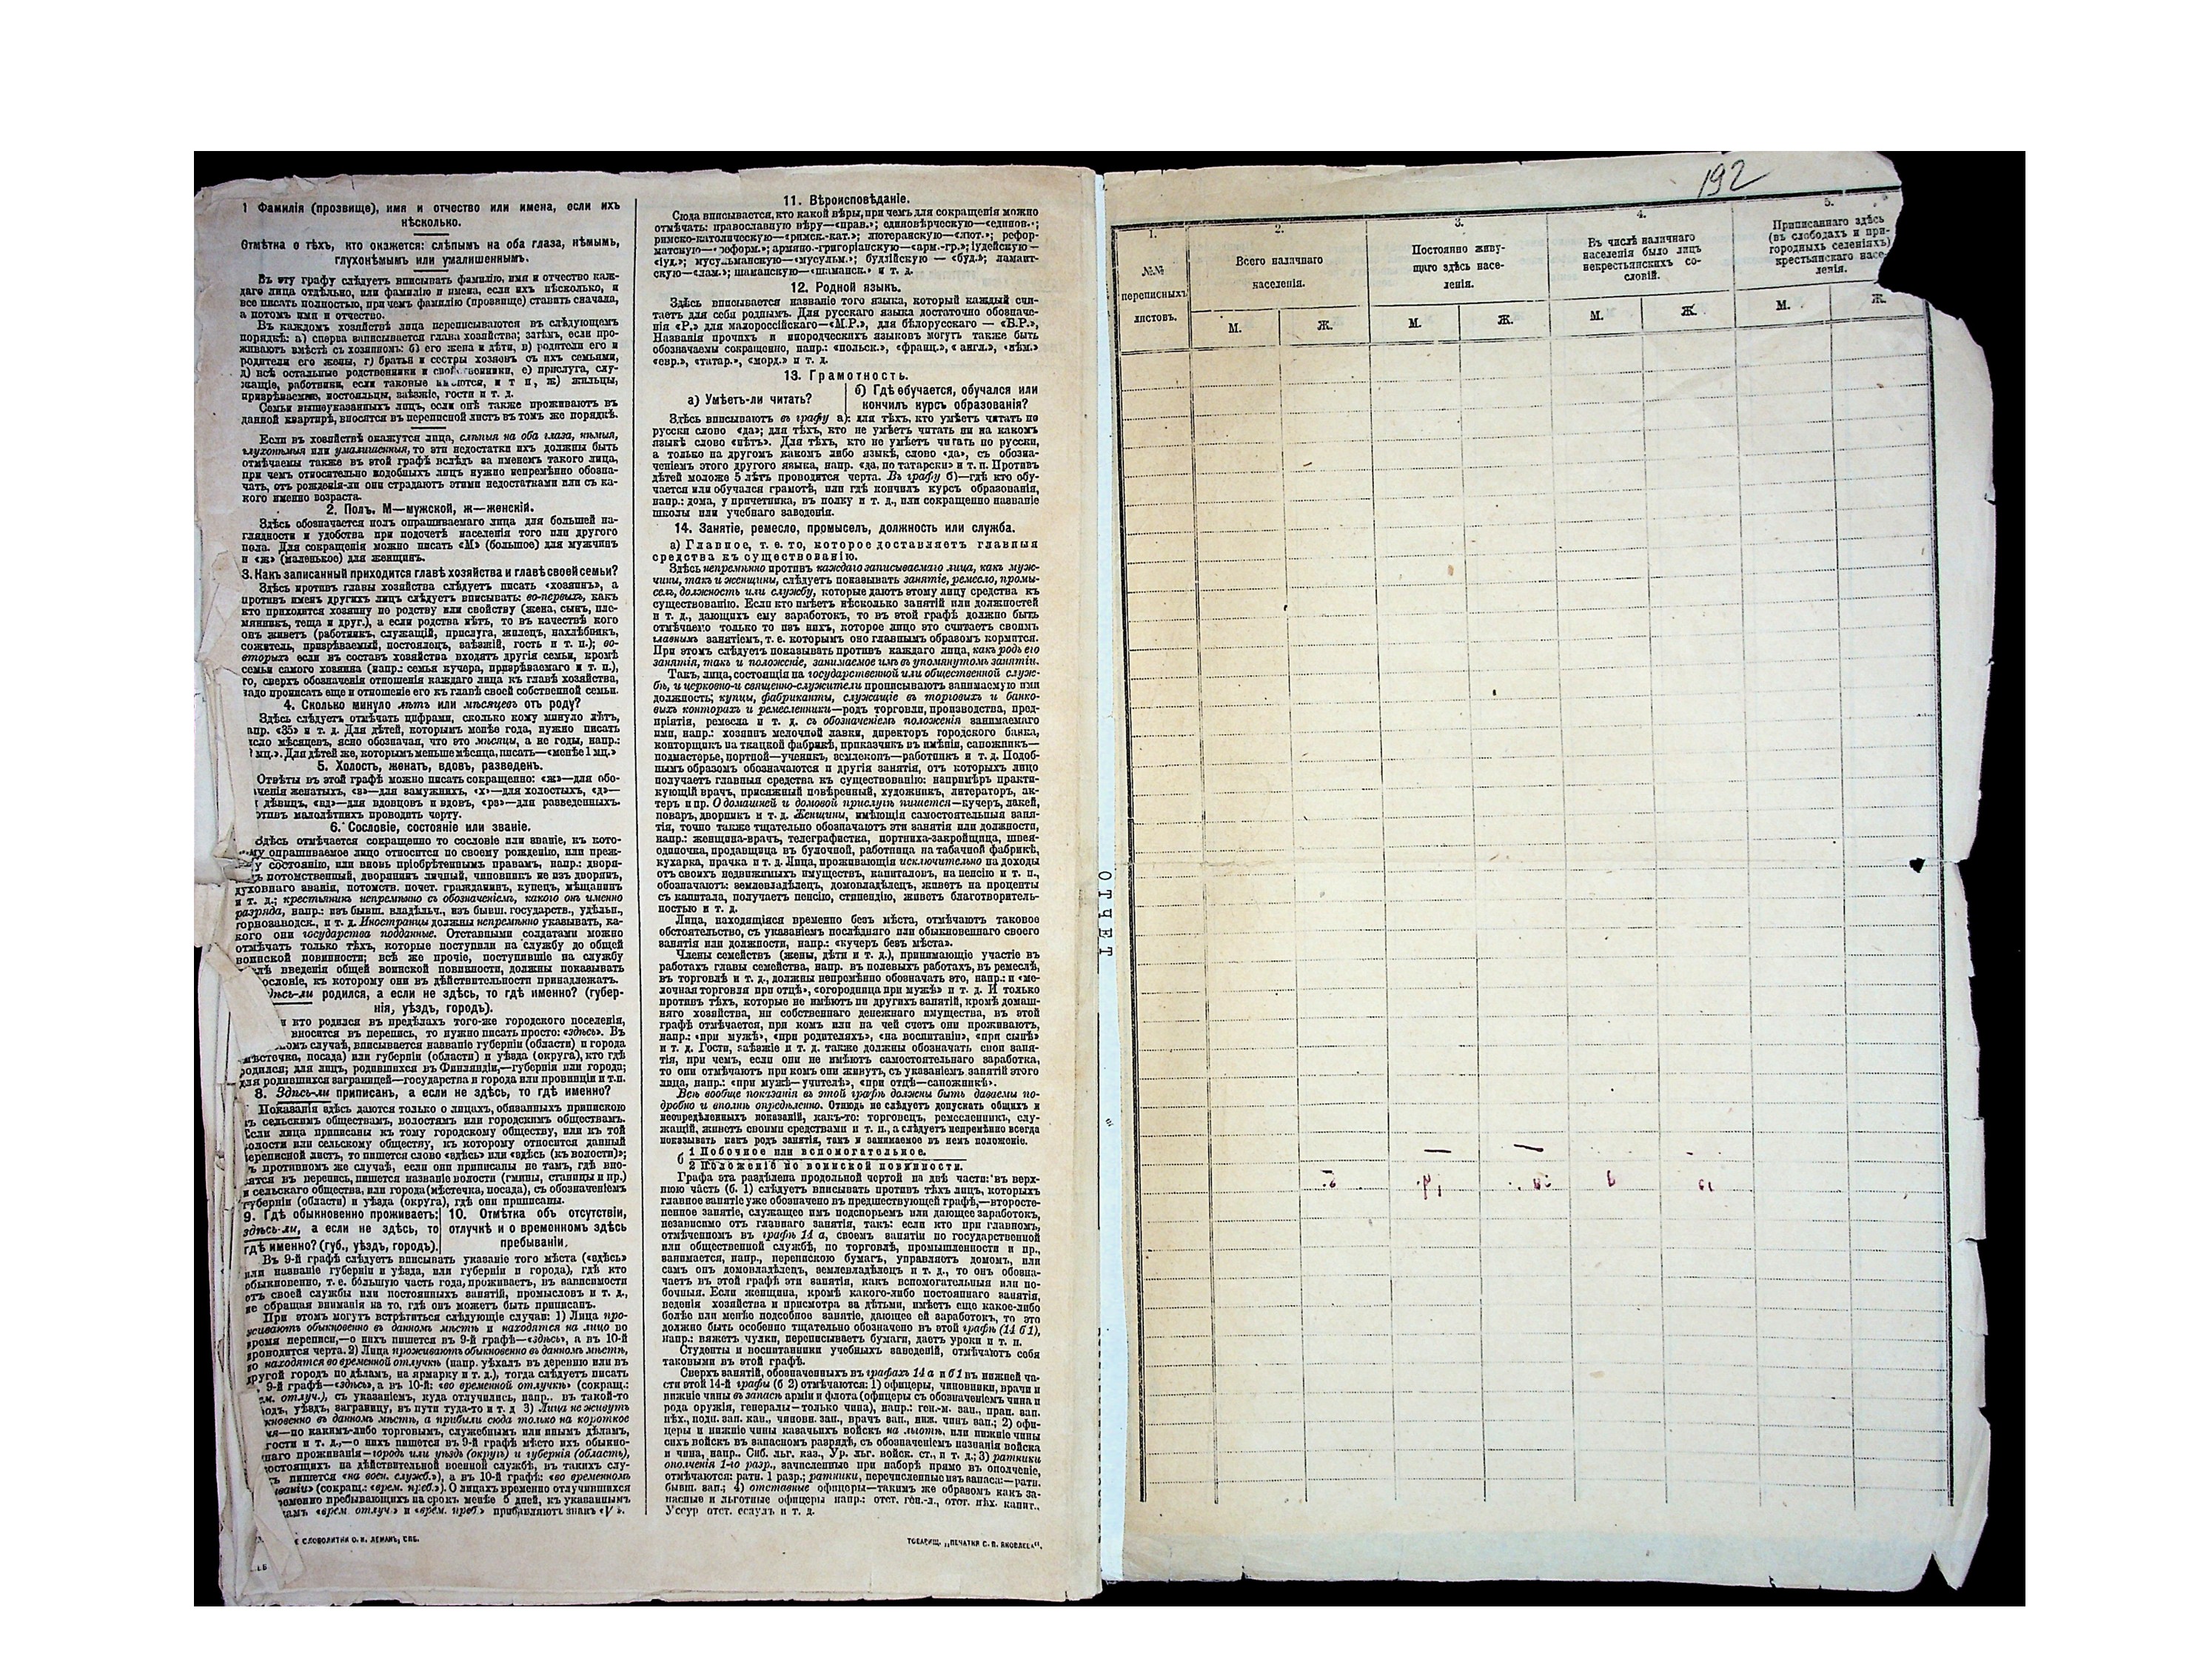 1 Фамилія (прозвище), имя и отчество или имена, если ихъ
нѣсколько.
Отмѣтка о тѣхъ, кто окажется: слѣпымъ на оба глаза, нѣмымъ,
глухонѣмымъ или умалишеннымъ.
Въ эту графу слѣдуетъ вписывать фамилію, имя и отчество каж-
даго лица отдѣльно, или фамилію и имена, если ихъ нѣсколько, и
все писать полностью, при чемъ фамилію (прозвище) ставить сначала,
а потомъ имя и отчество.
Въ каждомъ хозяйствѣ лица переписываются въ слѣдующемъ
порядкѣ: а) сперва записывается глава хозяйства; затѣмъ, если про-
живаютъ вмѣстѣ съ хозяиномъ: б) его жена и дѣти, в) родители его и
родители его жены, г) братья и сестры хозяевъ съ ихъ семьями,
д) всѣ остальные родственники и свойственники, е) прислуга, слу-
жащіе, работники, если таковые имѣются, и т п, ж) жильцы,
призрѣваемые, постояльцы, заѣзжіе, гости и т. д.
Семьи вышеуказанныхъ лицъ, если онѣ также проживаютъ въ
данной квартирѣ, вносятся въ переписной листъ въ томъ же порядкѣ.
Если въ хозяйствѣ окажутся лица, слѣпыя на оба глаза, нѣмыя,
глухонѣмыя или умалишенныя, то эти недостатки ихъ должны быть
отмѣчаемы также въ этой графѣ вслѣдъ за именемъ такого лица,
при чемъ относительно подобныхъ лицъ нужно непремѣнно обозна-
чать, отъ рожденія-ли они страдаютъ этими недостатками или съ ка-
кого именно возраста.
2. Полъ. М—мужской, ж—женскій.
Здѣсь обозначается полъ опрашиваемаго лица для большей на-
глядности и удобства при подсчетѣ населенія того или другого
пола. Для сокращенія можно писать «М» (большое) для мужчинъ
и «ж» (маленькое) для женщинъ.
3. Какъ записанный приходится главѣ хозяйства и главѣ своей семьи?
Здѣсь противъ главы хозяйства слѣдуетъ писать «хозяинъ», а
противъ именъ другихъ лицъ слѣдуетъ вписывать: во-первыхъ, какъ
кто приходится хозяину по родству или свойству (жена, сынъ, пле-
мянникъ, теща и друг.), а если родства нѣтъ, то въ качествѣ кого
онъ живетъ (работникъ, служащій, прислуга, жилецъ, нахлѣбникъ,
сожитель, призрѣваемый, постоялецъ, заѣзжій, гость и т. п.); во-
вторыхъ если въ составъ хозяйства входятъ другія семьи, кромѣ
семьи самого хозяина (напр.: семья кучера, призрѣваемаго и т. п.),
го, сверхъ обозначенія отношенія каждаго лица къ главѣ хозяйства,
надо прописать еще и отношеніе его къ главѣ своей собственной семьи.
4. Сколько минуло лѣтъ или мѣсяцевъ отъ роду?
Здѣсь слѣдуетъ отмѣчать цифрами, сколько кому минуло лѣтъ,
апр. «35» и т. д. Для дѣтей, которымъ менѣе года, нужно писать
исло мѣсяцевъ, ясно обозначая, что это мѣсяцы, а не годы, напр.:
мц.». Для дѣтей же, которымъ меньше мѣсяца, писать—«менѣе 1 мц.»
5. Холостъ, женатъ, вдовъ, разведенъ.
Отвѣты въ этой графѣ можно писать сокращенно: «ж»—для обо-
ченія женатыхъ, «з»—для замужнихъ, «х»—для холостыхъ, «д»—
дѣвицъ, «вд»—для вдовцовъ и вдовъ, «рз»—для разведенныхъ.
отивъ малолѣтнихъ проводить черту.
6. Сословіе, состояніе или званіе.
Здѣсь отмѣчается сокращенно то сословіе или званіе, къ кото-
му опрашиваемое лицо относится по своему рожденію, или преж-
у состоянію, или вновь пріобрѣтеннымъ правамъ, напр.: дворя-
ъ потомственный, дворянинъ личный, чиновникъ не изъ дворянъ,
духовнаго званія, потомств. почет. гражданинъ, купецъ, мѣщанинъ
и т. д.; крестьянинъ непремѣнно съ обозначеніемъ, какого онъ именно
разряда, напр.: изъ бывш. владѣльч., изъ бывш. государств., удѣльн.,
горнозаводск., и т. д. Иностранцы должны непремѣнно указывать, ка-
кого они государства подданные. Отставными солдатами можно
отмѣчать только тѣхъ, которые поступили на службу до общей
воинской повинности; всѣ же прочіе, поступившіе на службу
слѣ введенія общей воинской повинности, должны показывать
ословіе, къ которому они въ дѣйствительности принадлежатъ.
дѣсь-ли родился, а если не здѣсь, то гдѣ именно? (губер-
нія, уѣздъ, городъ).
и кто родился въ предѣлахъ того-же городского поселенія,
вносится въ перепись, то нужно писать просто: «здѣсь». Въ
омъ случаѣ, вписывается названіе губерніи (области) и города
мѣстечка, посада) или губерніи (области) и уѣзда (округа), кто гдѣ
родился; для лицъ, родившихся въ Финляндіи,—губерніи или города;
для родившихся заграницей—государства и города или провинціи и т.п.
8. Здѣсь-ли приписанъ, а если не здѣсь, то гдѣ именно?
Показанія здѣсь даются только о лицахъ, обязанныхъ припискою
къ сельскимъ обществамъ, волостямъ или городскимъ обществамъ.
Если лица приписаны къ тому городскому обществу, или къ той
волости или сельскому обществу, къ которому относится данный
переписной листъ, то пишется слово «здѣсь» или «здѣсь (къ волости)»;
ъ противномъ же случаѣ, если они приписаны не тамъ, гдѣ вно-
сятся въ перепись, пишется названіе волости (гмины, станицы и пр.)
и сельскаго общества, или города (мѣстечка, посада), съ обозначеніемъ
губерніи (области) и уѣзда (округа), гдѣ они приписаны.
9. Гдѣ обыкновенно проживаетъ:
здѣсь-ли, а если не здѣсь, то
гдѣ именно? (губ., уѣздъ, городъ).
10. Отмѣтка объ отсутствіи,
отлучкѣ и о временномъ здѣсь
пребываніи.
Въ 9-й графѣ слѣдуетъ вписывать указаніе того мѣста («здѣсь»
или названіе губерніи и уѣзда, или губерніи и города), гдѣ кто
обыкновенно, т. е. бо́льшую часть года, проживаетъ, въ зависимости
отъ своей службы или постоянныхъ занятій, промысловъ и т. д.,
не обращая вниманія на то, гдѣ онъ можетъ быть приписанъ.
При этомъ могутъ встрѣтиться слѣдующіе случаи: 1) Лица про-
живаютъ обыкновенно въ данномъ мѣстѣ и находятся на лицо во
время переписи,—о нихъ пишется въ 9-й графѣ—«здѣсь», а въ 10-й
проводится черта. 2) Лица проживаютъ обыкновенно въ данномъ мѣстѣ,
но находятся во временной отлучкѣ (напр. уѣхалъ въ деревню или въ
другой городъ по дѣламъ, на ярмарку и т. д.), тогда слѣдуетъ писать
9-й графѣ—«здѣсь», а въ 10-й: «во временной отлучкѣ» (сокращ.:
ем. отлуч.), съ указаніемъ, куда отлучились, напр.. въ такой-то
одъ, уѣздъ, заграницу, въ пути туда-то и т. д 3) Лица не живутъ
кновенно въ данномъ мѣстѣ, а прибыли сюда только на короткое
мя—по какимъ-либо торговымъ, служебнымъ или инымъ дѣламъ,
гости и т. д.,—о нихъ пишется въ 9-й графѣ мѣсто ихъ обыкно-
наго проживанія—городъ или уѣздъ (округъ) и губернія (область),
остоящихъ на дѣйствительной военной службѣ, въ такихъ слу-
ъ пишется «на воен. служб.»), а въ 10-й графѣ: «во временномъ
ваніи» (сокращ.: «врем. преб.»). О лицахъ временно отлучившихся
ременно пребывающихъ на срокъ менѣе 5 дней, къ указаннымъ
камъ «врем. отлуч.» и «врем. преб.» прибавляютъ знакъ «V».
СЛОВОЛИТНИ О. И. ЛЕМАНЪ, СПБ.
11. Вѣроисповѣданіе.
Сюда вписывается, кто какой вѣры, при чемъ для сокращенія можно
отмѣчать: православную вѣру—«прав.»; единовѣрческую—«единов.»;
римско-католическую—«римск.-кат.»; лютеранскую—«лют.»; рефор-
матскую—«реформ.»; армяно-григоріанскую—«арм.-гр.»; іудейскую—
«іуд.»; мусульманскую—«мусульм.»; буддійскую — «буд.»; ламаит-
скую—«лам.»; шаманскую—«шаманск.» и т. д.
12. Родной языкъ.
Здѣсь вписывается названіе того языка, который каждый счи-
таетъ для себя роднымъ. Для русскаго языка достаточно обозначе-
нія «Р.» для малороссійскаго—«М.Р.», для бѣлорусскаго — «Б.Р.»,
Названія прочихъ и инородческихъ языковъ могутъ также быть
обозначаемы сокращенно, напр.: «польск.», «франц.», «англ.», «нѣм.»
«евр.», «татар.», «морд.» и т. д.
13. Грамотность.
а) Умѣетъ-ли читать?
б) Гдѣ обучается, обучался или
кончилъ курсъ образованія?
Здѣсь вписываютъ въ графу а): для тѣхъ, кто умѣетъ читать по
русски слово «да»; для тѣхъ, кто не умѣетъ читать ни на какомъ
языкѣ слово «нѣтъ». Для тѣхъ, кто не умѣетъ читать по русски,
а только на другомъ какомъ либо языкѣ, слово «да», съ обозна-
ченіемъ этого другого языка, напр. «да, по татарски» и т. п. Противъ
дѣтей моложе 5 лѣтъ проводится черта. Въ графу б)—гдѣ кто обу-
чается или обучался грамотѣ, или гдѣ кончилъ курсъ образованія,
напр.: дома, у причетника, въ полку и т. д., или сокращенно названіе
школы или учебнаго заведенія.
14. Занятіе, ремесло, промыселъ, должность или служба.
а) Главное, т. е. то, которое доставляетъ главныя
средства къ существованію.
Здѣсь непремѣнно противъ каждаго записываемаго лица, какъ муж-
чины, такъ и женщины, слѣдуетъ показывать занятіе, ремесло, промы-
селъ, должность или службу, которые даютъ этому лицу средства къ
существованію. Если кто имѣетъ нѣсколько занятій или должностей
и т. д., дающихъ ему заработокъ, то въ этой графѣ должно быть
отмѣчаемо только то изъ нихъ, которое лицо это считаетъ своимъ
главнымъ занятіемъ, т. е. которымъ оно главнымъ образомъ кормится.
При этомъ слѣдуетъ показывать противъ каждаго лица, какъ родъ его
занятія, такъ и положеніе, занимаемое имъ въ упомянутомъ занятіи.
Такъ, лица, состоящія на государственной или общественной служ-
бѣ, и церковно-и священно-служители прописываютъ занимаемую ими
должность; купцы, фабриканты, служащіе въ торговыхъ и банко-
выхъ конторахъ и ремесленники—родъ торговли, производства, пред-
пріятія, ремесла и т. д. съ обозначеніемъ положенія занимаемаго
ими, напр.: хозяинъ мелочной лавки, директоръ городского банка,
конторщикъ на ткацкой фабрикѣ, приказчикъ въ имѣніи, сапожникъ—
подмастерье, портной—ученикъ, землекопъ—работникъ и т. д. Подоб-
нымъ образомъ обозначаются и другія занятія, отъ которыхъ лицо
получаетъ главныя средства къ существованію: напримѣръ практи-
кующій врачъ, присяжный повѣренный, художникъ, литераторъ, ак-
теръ и пр. О домашней и домовой прислугѣ пишется—кучеръ, лакей,
поваръ, дворникъ и т. д. Женщины, имѣющія самостоятельныя заня-
тія, точно также тщательно обозначаютъ эти занятія или должности,
напр.: женщина-врачъ, телеграфистка, портниха-закройщица, швея-
одиночка, продавщица въ булочной, работница на табачной фабрикѣ,
кухарка, прачка и т. д. Лица, проживающія исключительно на доходы
отъ своихъ недвижимыхъ имуществъ, капиталовъ, на пенсію и т. п.,
обозначаютъ: землевладѣлецъ, домовладѣлецъ, живетъ на проценты
съ капитала, получаетъ пенсію, стипендію, живетъ благотворитель-
ностью и т. д.
Лица, находящіяся временно безъ мѣста, отмѣчаютъ таковое
обстоятельство, съ указаніемъ послѣдняго или обыкновеннаго своего
занятія или должности, напр.: «кучеръ безъ мѣста».
Члены семействъ (жены, дѣти и т. д.), принимающіе участіе въ
работахъ главы семейства, напр. въ полевыхъ работахъ, въ ремеслѣ,
въ торговлѣ и т. д., должны непремѣнно обозначать это, напр.: и «ме-
лочная торговля при отцѣ», «огородница при мужѣ» и т. д. И только
противъ тѣхъ, которые не имѣютъ ни другихъ занятій, кромѣ домаш-
няго хозяйства, ни собственнаго денежнаго имущества, въ этой
графѣ отмѣчается, при комъ или на чей счетъ они проживаютъ,
напр.: «при мужѣ», «при родителяхъ», «на воспитаніи», «при сынѣ»
и т. д. Гости, заѣзжіе и т. д. также должны обозначать свои заня-
тія, при чемъ, если они не имѣютъ самостоятельнаго заработка,
то они отмѣчаютъ при комъ они живутъ, съ указаніемъ занятій этого
лица, напр.: «при мужѣ—учителѣ», «при отцѣ—сапожникѣ».
Всѣ вообще показанія въ этой графѣ должны быть даваемы по-
дробно и вполнѣ опредѣленно. Отнюдь не слѣдуетъ допускать общихъ и
неопредѣленныхъ показаній, какъ-то: торговецъ, ремесленникъ, слу-
жащій, живетъ своими средствами и т. п., а слѣдуетъ непремѣнно всегда
показывать какъ родъ занятія, такъ и занимаемое въ немъ положеніе.
б
1 Побочное или вспомогательное.
2 Положеніе по воинской повинности.
Графа эта раздѣлена продольной чертой на двѣ части: въ верх-
нюю часть (б. 1) слѣдуетъ вписывать противъ тѣхъ лицъ, которыхъ
главное занятіе уже обозначено въ предшествующей графѣ,—второсте-
пенное занятіе, служащее имъ подспорьемъ или дающее заработокъ,
независимо отъ главнаго занятія, такъ: если кто при главномъ,
отмѣченномъ въ графѣ 14 а, своемъ занятіи по государственной
или общественной службѣ, по торговлѣ, промышленности и пр.,
занимается, напр., перепискою бумагъ, управляетъ домомъ, или
самъ онъ домовладѣлецъ, землевладѣлецъ и т. д., то онъ обозна-
чаетъ въ этой графѣ эти занятія, какъ вспомогательныя или по-
бочныя. Если женщина, кромѣ какого-либо постояннаго занятія,
веденія хозяйства и присмотра за дѣтьми, имѣетъ еще какое-либо
болѣе или менѣе подсобное занятіе, дающее ей заработокъ, то это
должно быть особенно тщательно обозначено въ этой графѣ (14 б1),
напр.: вяжетъ чулки, переписываетъ бумаги, даетъ уроки и т. п.
Студенты и воспитанники учебныхъ заведеній, отмѣчаютъ себя
таковыми въ этой графѣ.
Сверхъ занятій, обозначенныхъ въ графахъ 14 а и б1 въ нижней ча-
сти этой 14-й графы (б 2) отмѣчаются: 1) офицеры, чиновники, врачи и
нижніе чины въ запасѣ арміи и флота (офицеры съ обозначеніемъ чина и
рода оружія, генералы—только чина), напр.: ген.-м. зап., прап. зап.
пѣх., подп. зап. кав., чиновн. зап., врачъ зап., ниж. чинъ зап.; 2) офи-
церы и нижніе чины казачьихъ войскъ на льготѣ, или нижніе чины
сихъ войскъ въ запасномъ разрядѣ, съ обозначеніемъ названія войска
и чина, напр., Сиб. льг. каз., Ур. льг. войск. ст., и т. д.; 3) ратники
ополченія 1-го разр., зачисленные при наборѣ прямо въ ополченіе,
отмѣчаются: ратн. 1 разр.; ратники, перечисленные изъ запаса:—ратн.
бывш. зап.; 4) отставные офицеры—такимъ же образомъ какъ за-
пасные и льготные офицеры напр.: отст. ген.-л., отст. пѣх. капит.,
Уссур отст. есаулъ и т. д.
ТОВАРИЩ. „ПЕЧАТНЯ С. П. ЯКОВЛЕВА“.
ОТЧЕТ
192
1.
№№
переписныхъ
листовъ.
2.
Всего наличнаго
населенія.
М. Ж.
3.
Постоянно живу-
щаго здѣсь насе-
ленія.
М. Ж.
4.
Въ числѣ наличнаго
населенія было лицъ
некрестьянскихъ со-
словій.
М. Ж.
5.
Приписаннаго здѣсь
(въ слободахъ и при-
городныхъ селеніяхъ)
крестьянскаго насе-
ленія.
М. Ж.